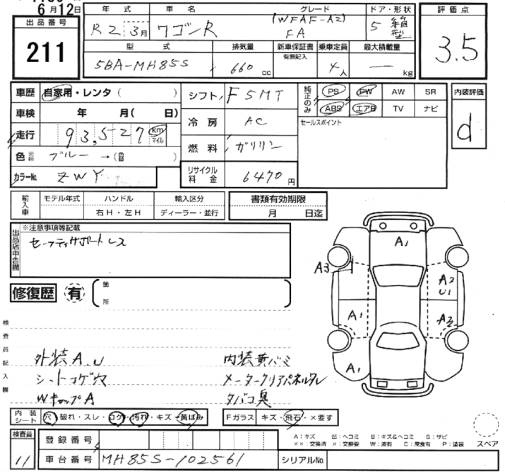 6月12日
出品番号
211
年式 車名 グレード ドア・形状
R2 3月 ワゴンR (WFAF-A2) FA 5 箱型
型式 排気量 新車保証書 乗車定員 最大積載量
有無記入
5BA-MH85S 660cc 4人 — kg
評価点
3.5
車歴 自家用・レンタ( )
車検 年 月( 日)
走行 93,527 km マイル
色 ブルー→( )
カラーNo. ZWY
シフト F5MT
冷房 AC
燃料 ガソリン
リサイクル料金 6470円
純正のみ PS PW AW SR
ABS エアB TV ナビ
セールスポイント
内装評価
d
輸入車 モデル年式 ハンドル 輸入区分
右H・左H ディーラー・並行
書類有効期限
月 日迄
※注意事項等記載
出品店申告欄
セーフティサポートレス
修復歴 有 箇所
検査員記入欄
外装A.U 内装黄バミ
シートコゲ穴 メータークリアパネルワレ
WキャップA タバコ臭
A1
A3
A2
U1
A1
A1
A2
A1
内装シート 穴・破れ・スレ・コゲ・汚れ・キズ・黄ばみ
Fガラス キズ・飛石・×要す
A:キズ U:ヘコミ B:キズ&ヘコミ S:サビ
××:交換済 ×:交換要 W:波 C:腐食 P:塗装
スペア
検査員
11
登録番号
車台番号 MH85S-102561
シリアルNo.